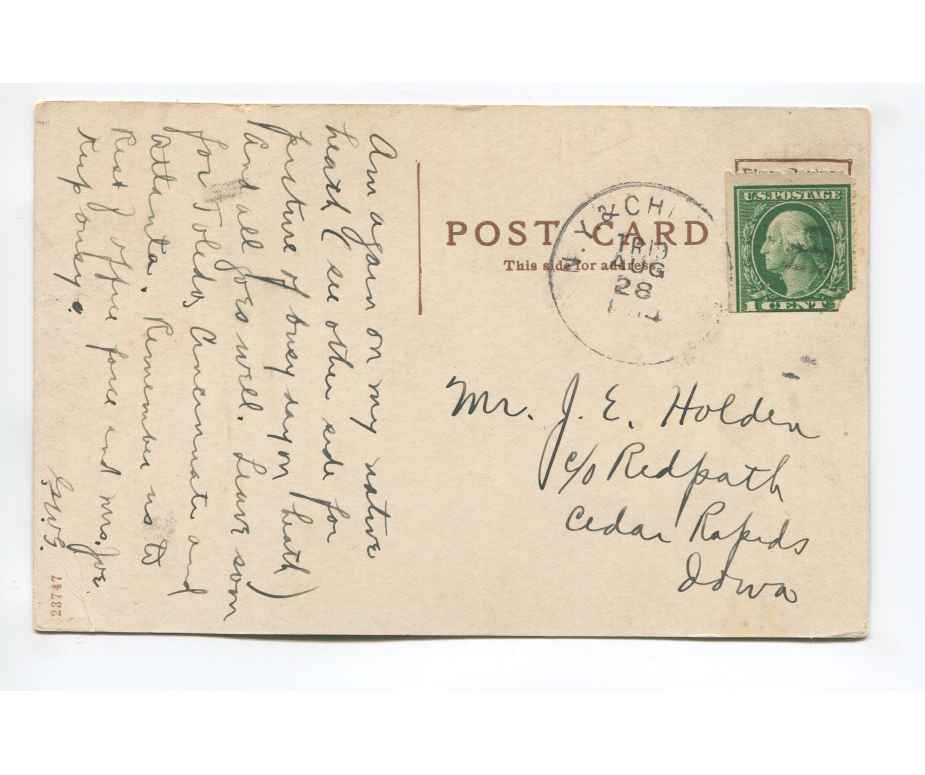 Am again on my native
heath (see other side for
picture of busy day on heath)
And all goes well. Leave soon
for Toledo, Cincinnati and
Atlanta. Remember us to
Rest of office force and Mrs. Joe
23747
POST CARD
This side for address.
N.Y. & CHI
TR 15
AUG
28
U.S. POSTAGE
1 CENT
Mr. J. E. Holden
c/o Redpath
Cedar Rapids
Iowa